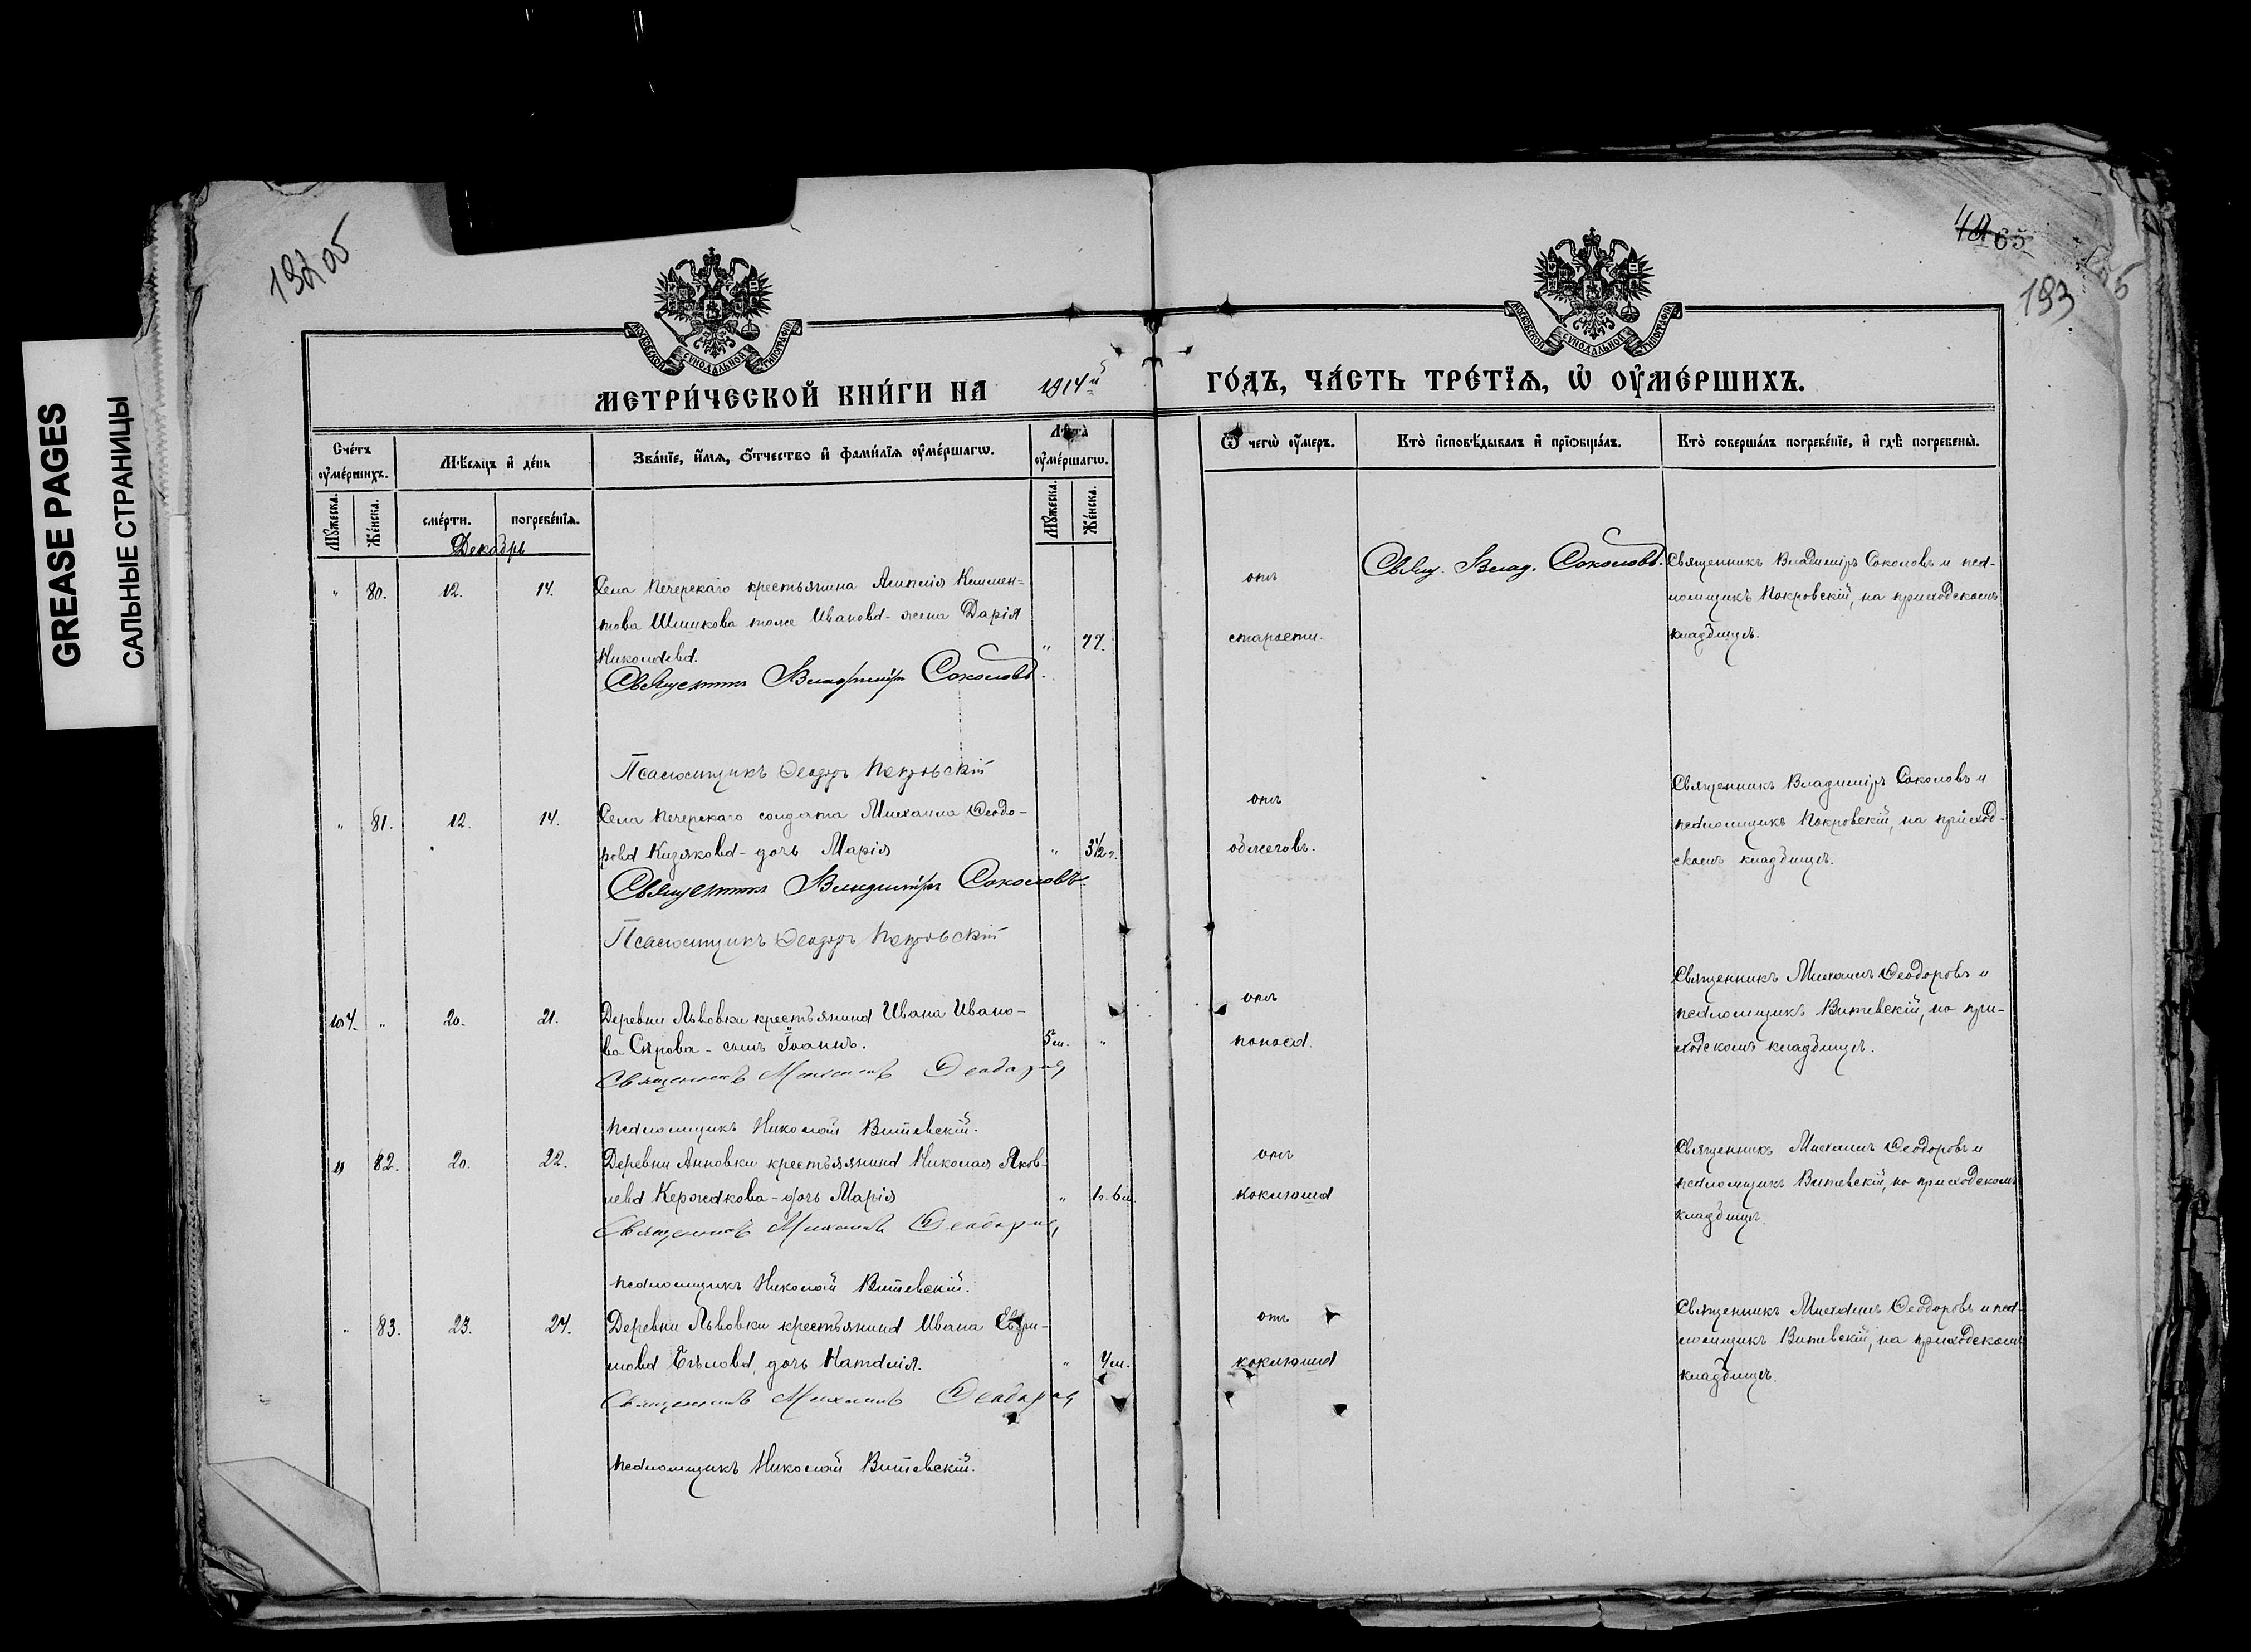 GREASE PAGES
САЛЬНЫЕ СТРАНИЦЫ
65
193
МОСКОВСКОЙ СѴНОДАЛЬНОЙ ТИПОГРАФІИ
МОСКОВСКОЙ СѴНОДАЛЬНОЙ ТИПОГРАФІИ
МЕТРИ́ЧЕСКОЙ КНИ́ГИ НА 1914й ГО́ДЪ, ЧА́СТЬ ТРЕ́ТІѦ, Ѡ҆ ОУ҆МЕ́РШИХЪ.
Сче́тъ оу҆ме́ршихъ.
Мѣ́сѧцъ и҆ де́нь
Зва́нїе, и҆́мѧ, ѻ҆́тчество и҆ фами́лїѧ оу҆ме́ршагѡ.
Лѣ́та оу҆ме́ршагѡ.
Ѿ чегѡ̀ оу҆́меръ.
Кто̀ и҆сповѣ́дывалъ и҆ прїѡбща́лъ.
Кто̀ соверша́лъ погребе́нїе, и҆ гдѣ̀ погребены̀.
Мꙋ́жеска.
Же́нска.
сме́рти.
погребе́нїѧ.
Мꙋ́жеска.
Же́нска.
Декабрь
" 80. 12. 14. Села Печерскаго крестьянина Алипія Климен-
това Шишкова тоже Иванова - жена Дарія
Николаева. " 77.
Священникъ Владиміръ Соколовъ.
Псаломщикъ Ѳеодоръ Покровскій
отъ
старости.
Свящ. Влад. Соколовъ.
Священникъ Владиміръ Соколовъ и пса-
ломщикъ Покровскій, на приходскомъ
кладбищѣ.
" 81. 12. 14. Села Печерскаго солдата Михаила Ѳеодо-
рова Кизякова - дочь Марія " 3½ г.
Священникъ Владиміръ Соколовъ
Псаломщикъ Ѳеодоръ Покровскій
отъ
обжоговъ.
Священникъ Владиміръ Соколовъ и
псаломщикъ Покровскій, на приход-
скомъ кладбищѣ.
104. " 20. 21. Деревни Львовки крестьянина Ивана Ивано-
ва Сѣрова - сынъ Іоаннъ. 5 м. "
Священникъ Михаилъ Ѳеодоровъ
псаломщикъ Николай Витевскій.
отъ
поноса.
Священникъ Михаилъ Ѳеодоровъ и
псаломщикъ Витевскій, на при-
ходскомъ кладбищѣ.
" 82. 20. 22. Деревни Анновки крестьянина Николая Яков-
лева Кержакова - дочь Марія " 1 г. 6 м.
Священникъ Михаилъ Ѳеодоровъ
псаломщикъ Николай Витевскій.
отъ
коклюша
Священникъ Михаилъ Ѳеодоровъ и
псаломщикъ Витевскій, на приходскомъ
кладбищѣ.
" 83. 23. 24. Деревни Львовки крестьянина Ивана
дочь Наталія. "
Священникъ Михаилъ Ѳеодоровъ
псаломщикъ Николай Витевскій.
отъ
коклюша
Священникъ Михаилъ Ѳеодоровъ и пса-
ломщикъ Витевскій, на приходскомъ
кладбищѣ.